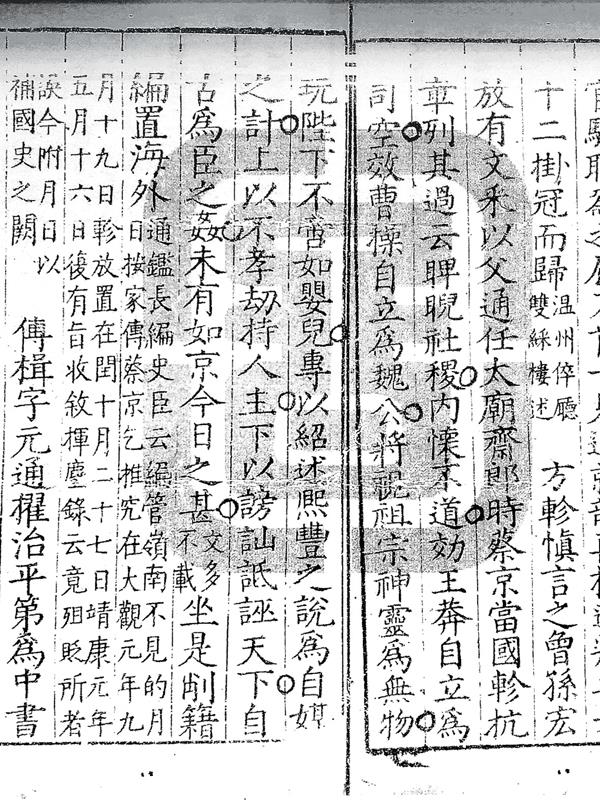 十二掛冠而歸溫州倅廳雙綵樓述 方軫愼言之曾孫宏
放有文釆以父通任太廟齋郎時蔡京當國軫抗
章列其過云睥睨社稷內懷不道効王莽自立爲
司空效曹操自立爲魏公將祖宗神靈爲無物
玩陛下不啻如嬰兒專以紹述熙豐之說爲自媒
之計上以不孝劫持人主下以謗訕詆誣天下自
古爲臣之姦未有如京今日之甚文多不載坐是削籍
編置海外通鑑長編史臣云編管嶺南不見的月日按家傳蔡京乞推究在大觀元年九
月十九日軫放置在閏十月二十七日靖康元年
五月十六日復有旨收敘揮麈錄云竟殂貶所者
誤今附月日以
補國史之闕 傅楫字元通擢治平第爲中書